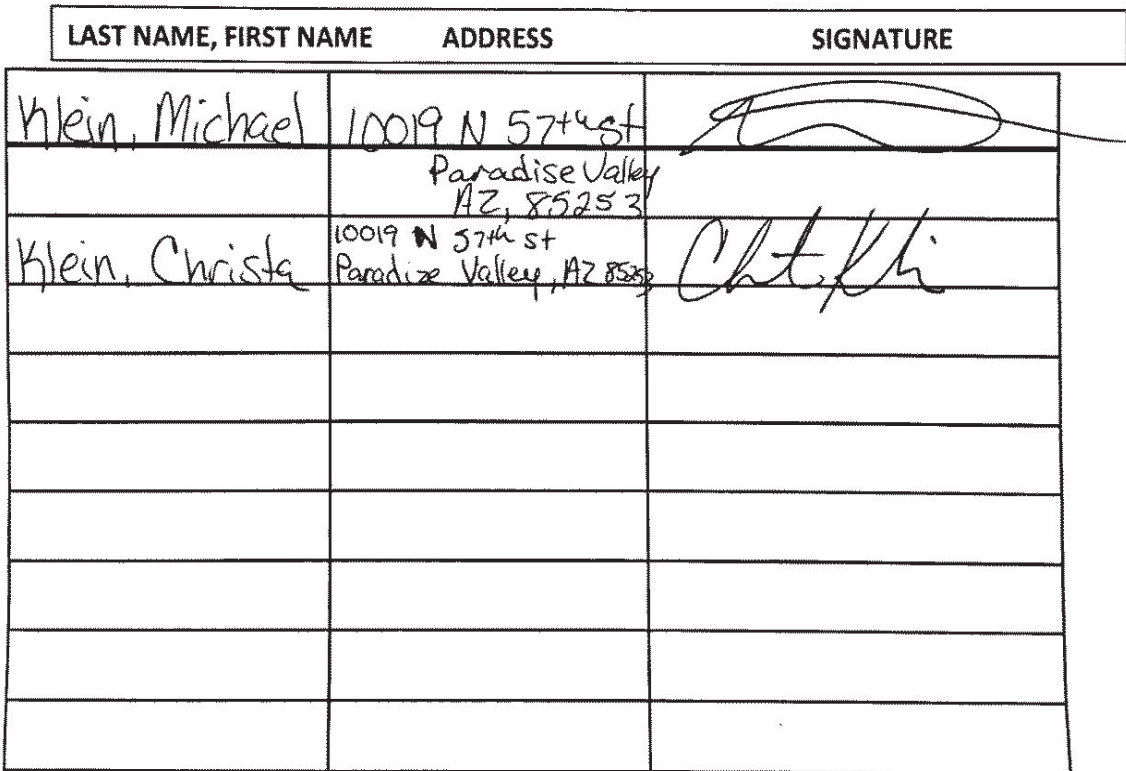 LAST NAME, FIRST NAME ADDRESS SIGNATURE
Klein, Michael 10019 N 57th st
Paradise Valley
AZ, 85253
10019 N 57th st
Klein, Christa Paradize Valley, AZ 85253